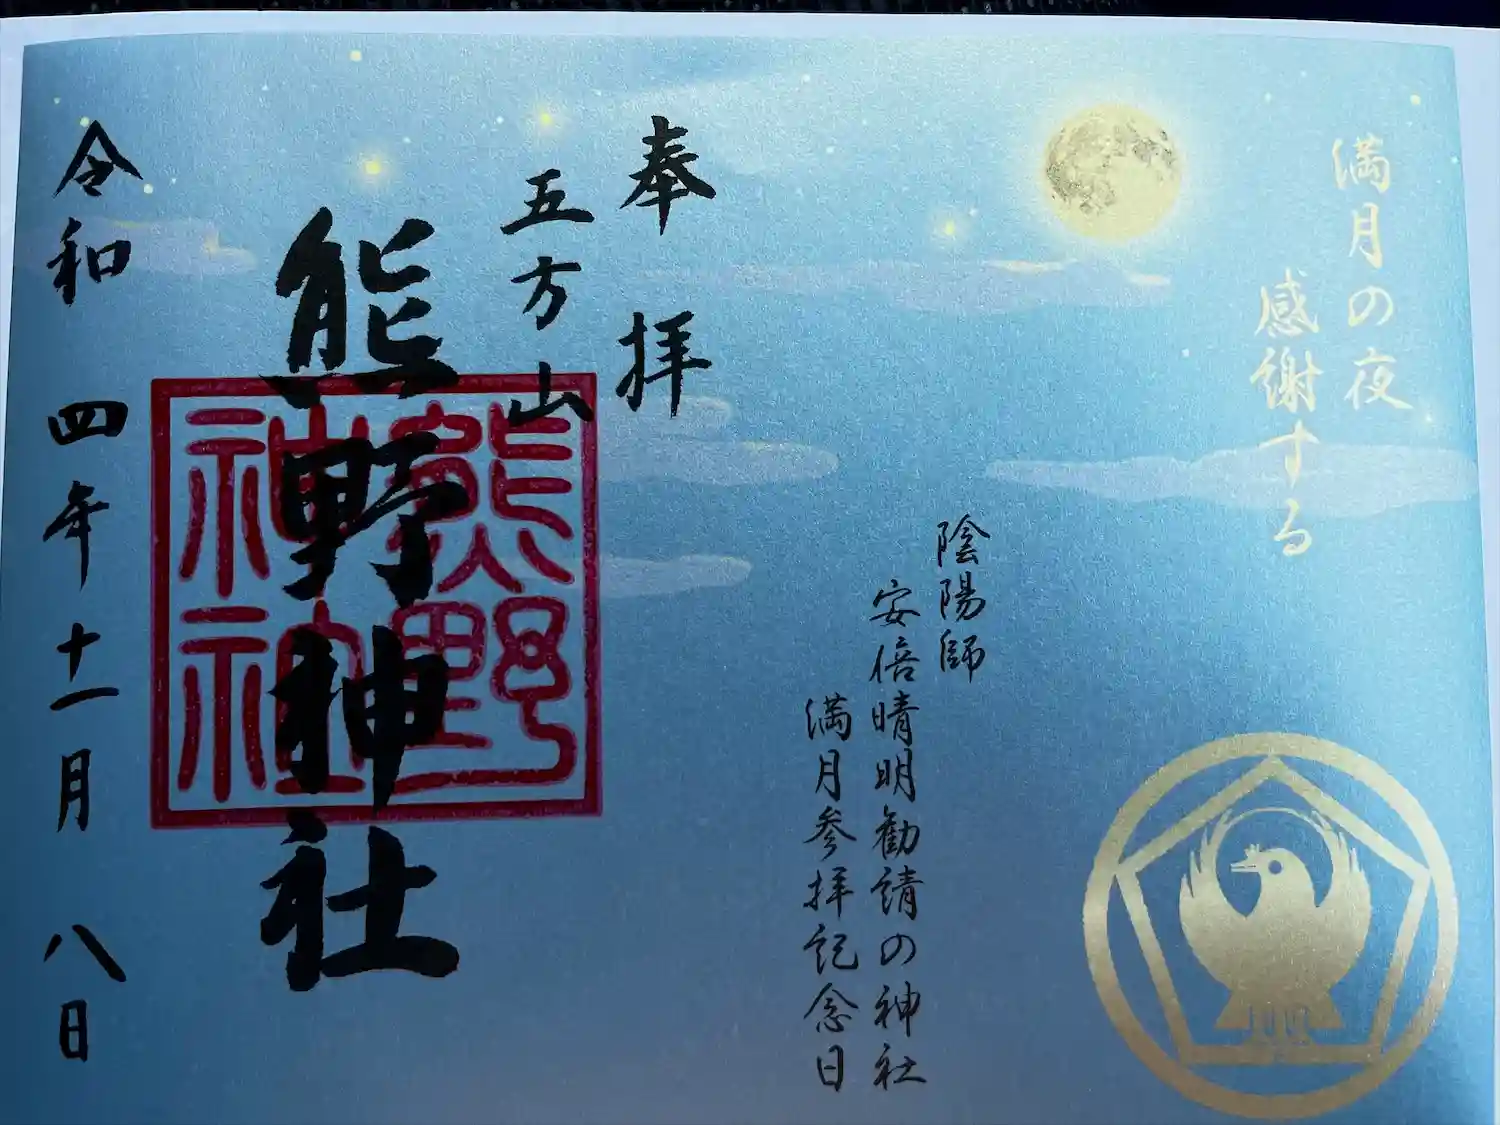 満月の夜
感謝する
陰陽師
安倍晴明勧請の神社
満月参拝記念日
奉拝
五方山
熊野神社
熊野
神社
令和四年十一月八日